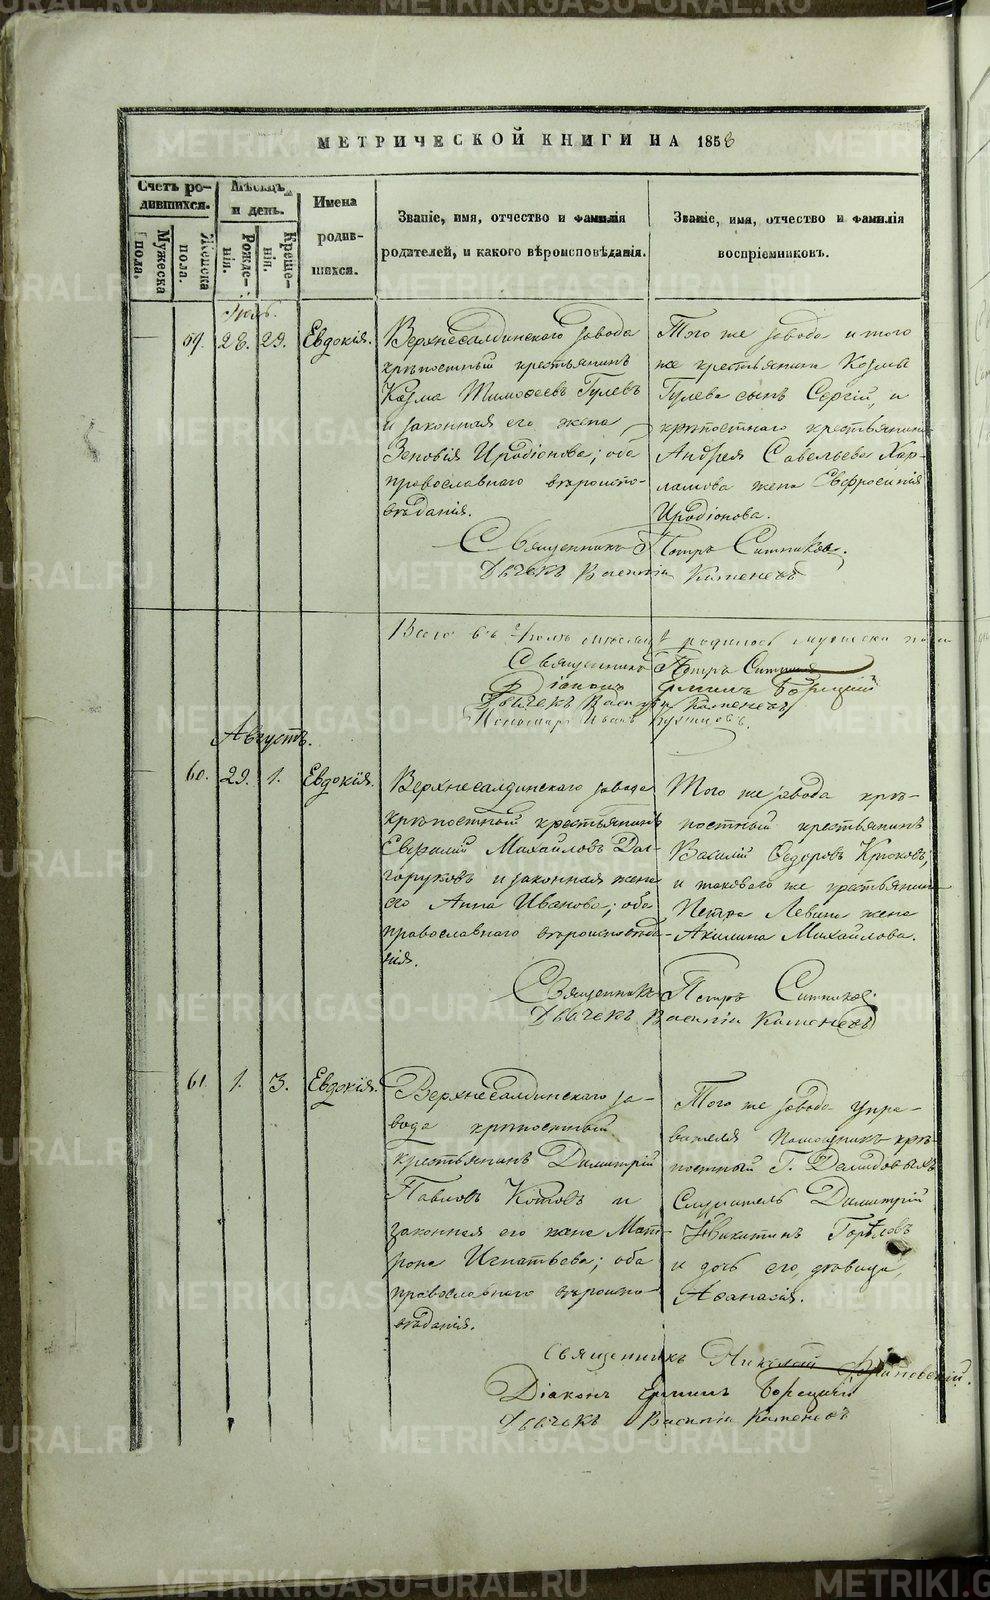 МЕТРИЧЕСКОЙ КНИГИ НА 1858
Счетъ ро-
дившихся.
Мѣсяцъ
и день.
Имена
родив-
шихся.
Званіе, имя, отчество и фамилія
родителей, и какого вѣроисповѣданія.
Званіе, имя, отчество и фамилія
воспріемниковъ.
Мужеска
пола.
Женска
пола.
Рожде-
нія.
Креще-
нія.
Іюль.
— 59. 28. 29. Евдокія.
Верхнесалдинскаго завода
крѣпостный крестьянинъ
Козма Тимоѳеевъ Гулевъ
и законная его жена
Зеновія Иродіонова; оба
православнаго вѣроиспо-
вѣданія.
Того же завода и того
же крестьянина Козмы
Гулева сынъ Сергій, и
крѣпостнаго крестьянина
Андрея Савельева Хар-
ламова жена Евфросинія
Иродіонова.
Священникъ Петръ Ситниковъ.
Дьячекъ Василій Каменевъ
Всего въ Іюлѣ мѣсяцѣ родилось мужеска пола
Священникъ Петръ Ситниковъ
Діаконъ Борецкій
Дьячекъ Василій Каменевъ
Пономарь Иванъ
Августъ.
— 60. 29. 1. Евдокія.
Верхнесалдинскаго завода
крѣпостный крестьянинъ
Михайловъ Дол-
горуковъ и законная жена
его Анна Иванова; оба
православнаго вѣроисповѣда-
нія.
Того же завода крѣ-
постный крестьянинъ
Василій Ѳедоровъ Крюковъ,
и таковаго же крестьянина
Петра Левина жена
Акилина Михайлова.
Священникъ Петръ Ситниковъ
Дьячекъ Василій Каменевъ
— 61. 1. 3. Евдокія.
Верхнесалдинскаго за-
вода крѣпостный
крестьянинъ Димитрій
Павловъ Котовъ и
законная его жена Мат-
рона Игнатьева; оба
православнаго вѣроиспо-
вѣданія.
Того же завода упра-
вителя помощникъ крѣ-
постный Г. Демидовыхъ
служитель Димитрій
Никитинъ Горѣловъ
и дочь его, дѣвица,
Аѳанасія.
Священникъ Николай
Діаконъ Борецкій
Дьячекъ Василій Каменевъ
METRIKI.GASO-URAL.RU